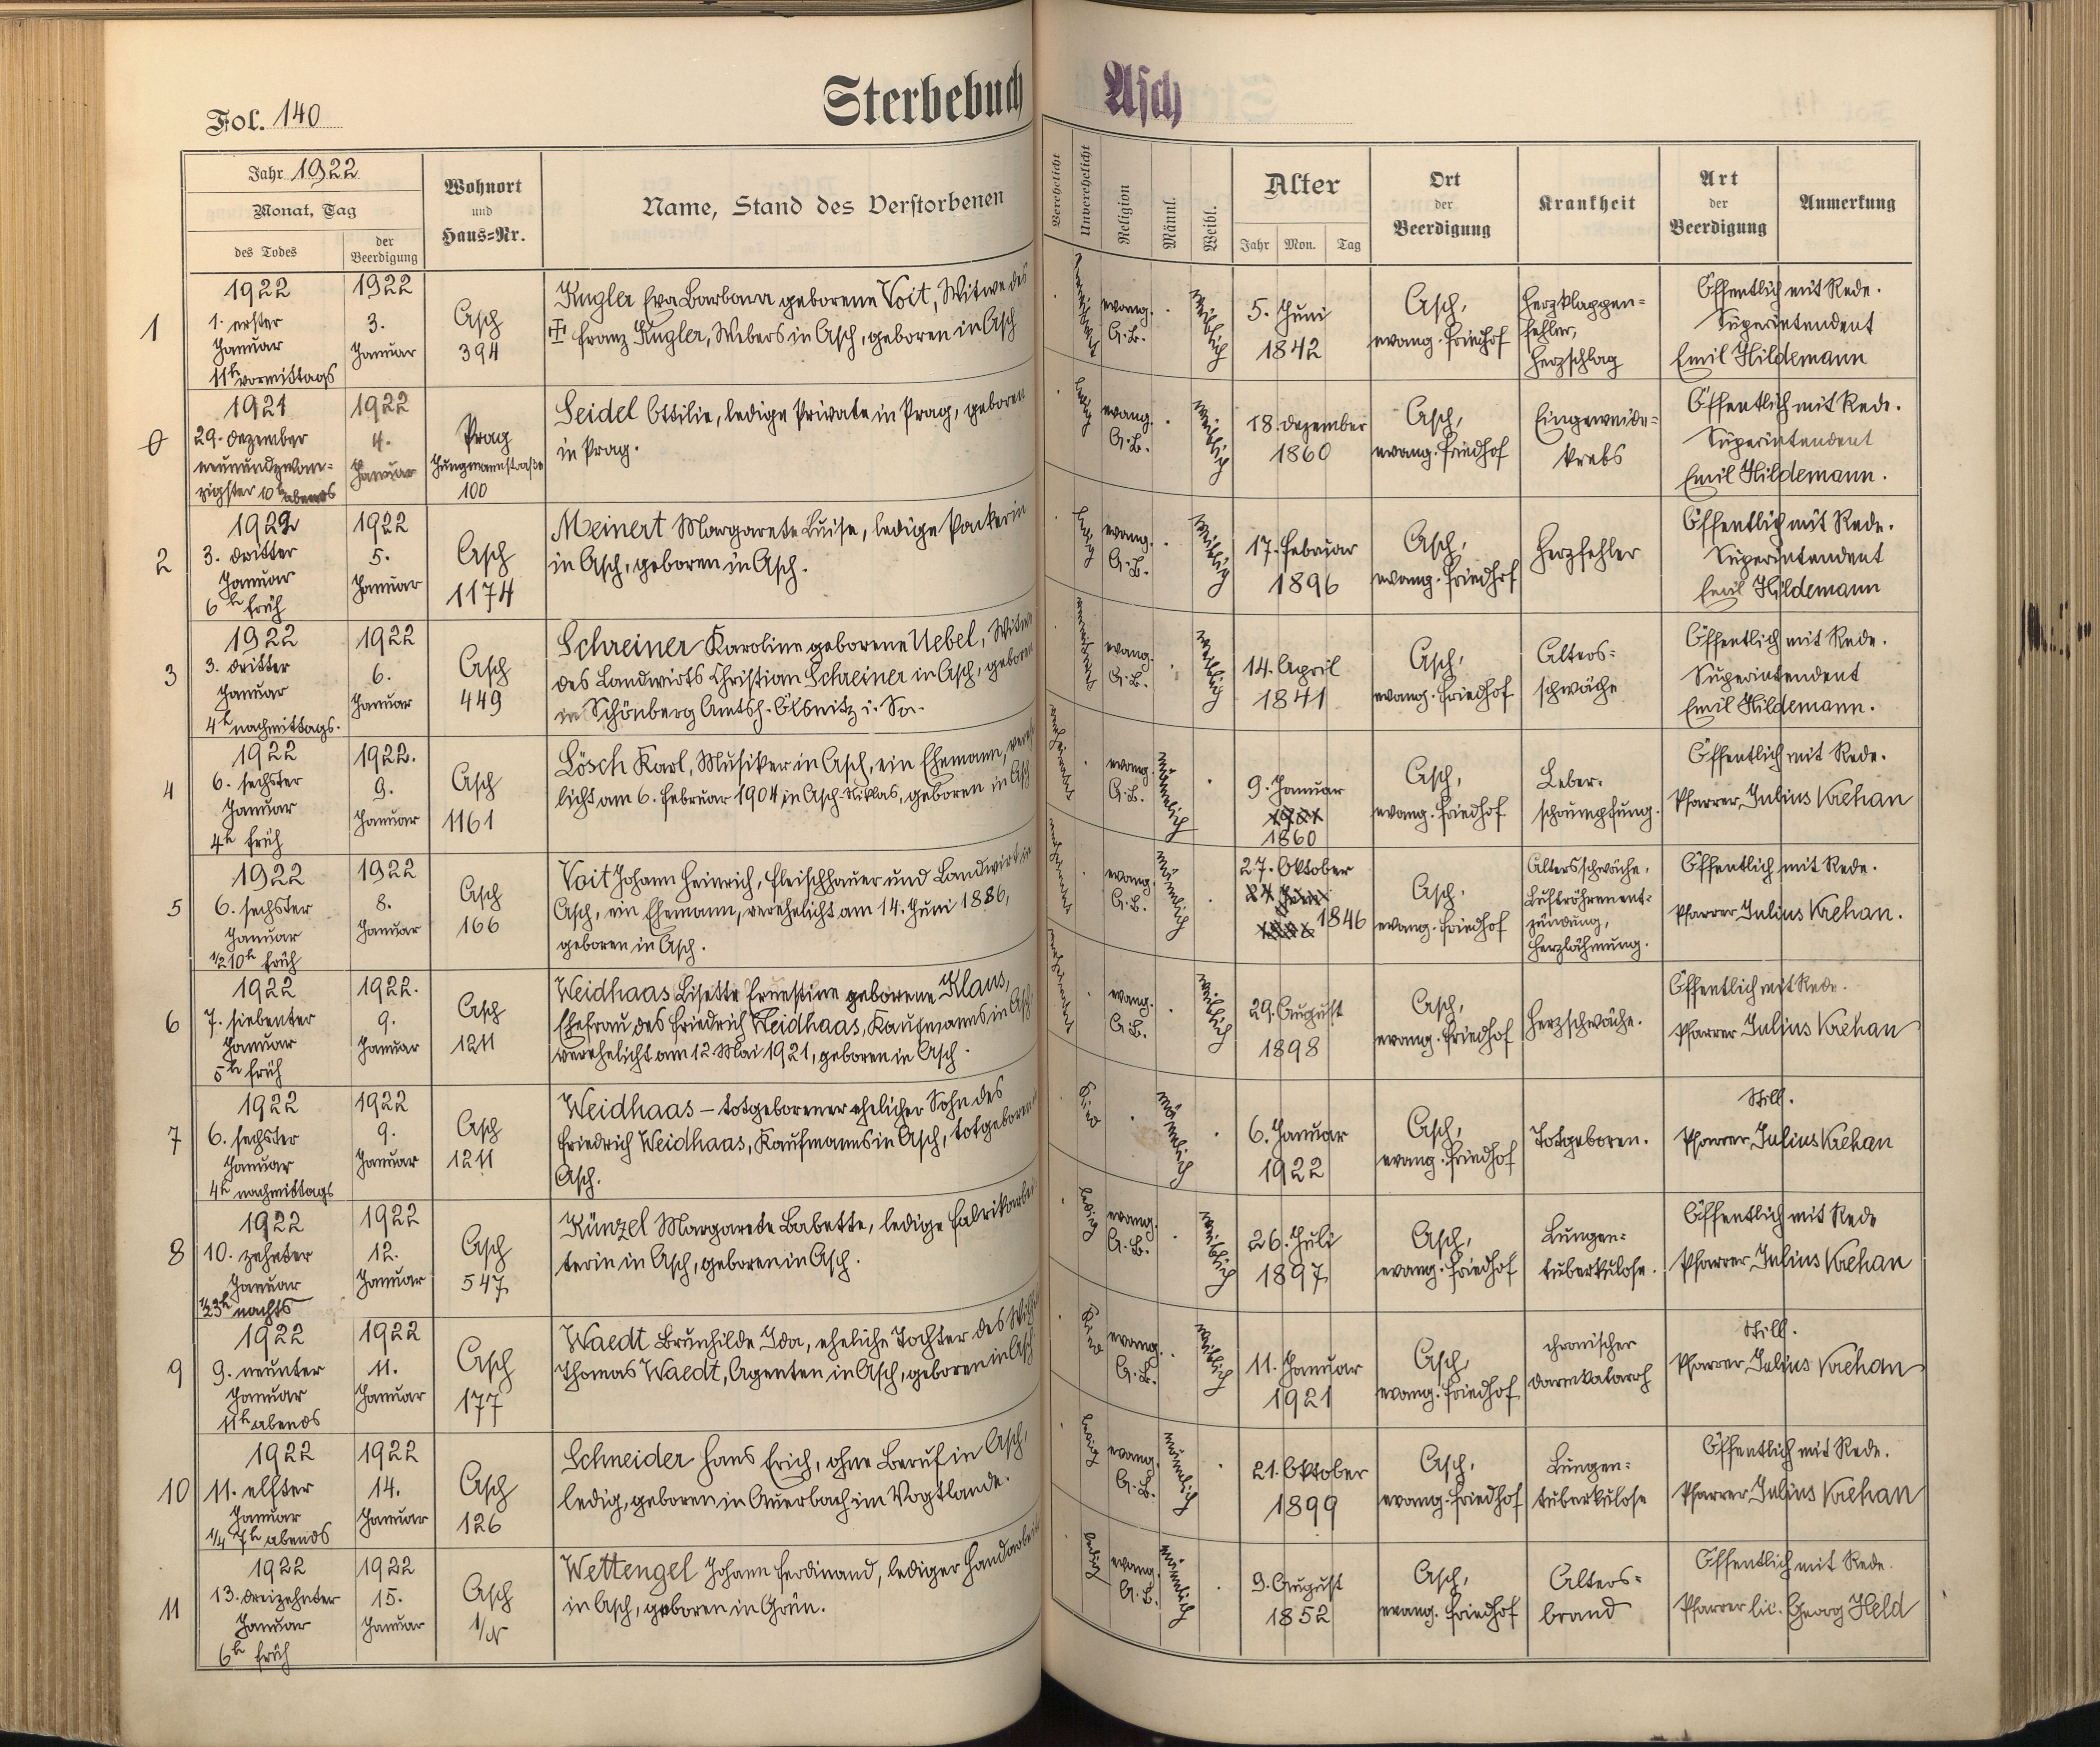 Fol. 140
Sterbebuch Asch
Jahr 1922
Monat, Tag
des Todes
der Beerdigung
Wohnort
und
Haus=Nr.
Name, Stand des Verstorbenen
Verehelicht
Unverehelicht
Religion
Männl.
Weibl.
Alter
Jahr Mon. Tag
Ort
der
Beerdigung
Krankheit
Art
der
Beerdigung
Anmerkung
1
1922
1. erster
Januar
11h vormittags
1922
3.
Januar
Asch
394
Kugler Eva Barbara geborene Voit, Witwe des
Franz Kugler, Webers in Asch, geboren in Asch
evang.
A.B.
weiblich
5. Juni
1842
Asch,
evang. Friedhof
Herzklappen=
fehler,
Herzschlag
Öffentlich mit Rede.
Superintendent
Emil Hildemann
0
1921
29. Dezember
neunundzwan=
zigster 10h abends
1922
4.
Januar
Prag
Jungmannstraße
100
Seidel Ottilie, ledige Private in Prag, geboren
in Prag.
ledig
evang.
A.B.
weiblich
18. Dezember
1860
Asch,
evang. Friedhof
Eingeweide=
krebs
Öffentlich mit Rede.
Superintendent
Emil Hildemann.
2
1922
3. dritter
Januar
6h früh
1922
5.
Januar
Asch
1174
Meinert Margarete Luise, ledige Packerin
in Asch, geboren in Asch.
ledig
evang.
A.B.
weiblich
17. Februar
1896
Asch,
evang. Friedhof
Herzfehler
Öffentlich mit Rede.
Superintendent
Emil Hildemann
3
1922
3. dritter
Januar
4h nachmittags.
1922
6.
Januar
Asch
449
Schreiner Karoline geborene Uebel, Witwe
des Landwirts Christian Schreiner in Asch, geboren
in Schönberg Amtsh. Ölsnitz i. Sa.
evang.
A.B.
weiblich
14. April
1841
Asch,
evang. Friedhof
Alters=
schwäche
Öffentlich mit Rede.
Superintendent
Emil Hildemann.
4
1922
6. sechster
Januar
4h früh
1922.
9.
Januar
Asch
1161
Lösch Karl, Musiker in Asch, ein Ehemann, vereh
licht am 6. Februar 1904 in Asch-Niklas, geboren in Asch
evang.
A.B.
männlich
9. Januar
1860
Asch,
evang. Friedhof
Leber=
schrumpfung.
Öffentlich mit Rede.
Pfarrer Julius Krehan
5
1922
6. sechster
Januar
1/2 10h früh
1922
8.
Januar
Asch
166
Voit Johann Heinrich, Fleischhauer und Landwirt in
Asch, ein Ehemann, verehelicht am 14. Juni 1886,
geboren in Asch.
evang.
A.B.
männlich
27. Oktober
1846
Asch,
evang. Friedhof
Altersschwäche,
Luftröhrenent=
zündung,
Herzlähmung.
Öffentlich mit Rede.
Pfarrer Julius Krehan.
6
1922
7. siebenter
Januar
5h früh
1922.
9.
Januar
Asch
1211
Weidhaas Lisette Ernestine geborene Klaus,
Ehefrau des Friedrich Weidhaas, Kaufmanns in Asch,
verehelicht am 12. Mai 1921, geboren in Asch.
evang.
A.B.
weiblich
29. August
1898
Asch,
evang. Friedhof
Herzschwäche.
Öffentlich mit Rede.
Pfarrer Julius Krehan
7
1922
6. sechster
Januar
4h nachmittags
1922
9.
Januar
Asch
1211
Weidhaas – totgeborener ehelicher Sohn des
Friedrich Weidhaas, Kaufmanns in Asch, totgeboren
Asch.
Kind
männlich
6. Januar
1922
Asch,
evang. Friedhof
Totgeboren.
Still.
Pfarrer Julius Krehan
8
1922
10. zehnter
Januar
1/2 3h nachts
1922
12.
Januar
Asch
547
Künzel Margarete Babette, ledige Fabrikarbei
terin in Asch, geboren in Asch.
ledig
evang.
A.B.
weiblich
26. Juli
1897
Asch,
evang. Friedhof
Lungen=
tuberkulose.
Öffentlich mit Rede
Pfarrer Julius Krehan
9
1922
9. neunter
Januar
11h abends
1922
11.
Januar
Asch
177
Waedt Brunhilde Ida, eheliche Tochter des Wilh
Thomas Waedt, Agenten in Asch, geboren in Asch
Kind
evang.
A.B.
weiblich
11. Januar
1921
Asch,
evang. Friedhof
chronischer
Darmkatarrh
Still.
Pfarrer Julius Krehan
10
1922
11. elfter
Januar
1/4 7h abends
1922
14.
Januar
Asch
126
Schneider Hans Erich, ohne Beruf in Asch,
ledig, geboren in Auerbach im Vogtlande.
ledig
evang.
A.B.
männlich
21. Oktober
1899
Asch,
evang. Friedhof
Lungen=
tuberkulose
Öffentlich mit Rede.
Pfarrer Julius Krehan
11
1922
13. dreizehnter
Januar
6h früh
1922
15.
Januar
Asch
Wettengel Johann Ferdinand, lediger Handarbeit
in Asch, geboren in Grün.
ledig
evang.
A.B.
männlich
9. August
1852
Asch,
evang. Friedhof
Alters=
brand
Öffentlich mit Rede.
Pfarrer lic. Georg Held